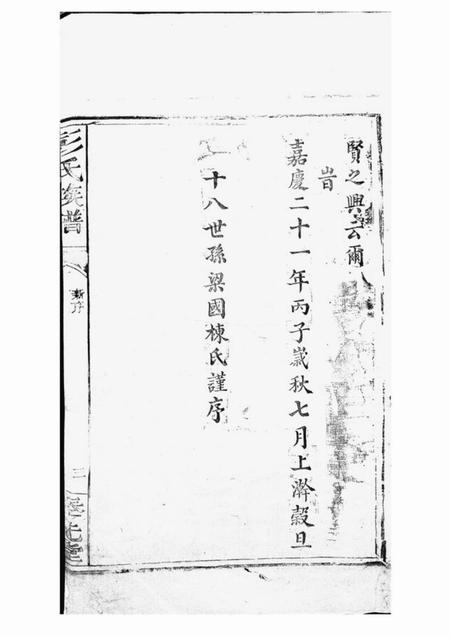 賢之興云爾
旹
嘉慶二十一年丙子歲秋七月上澣穀旦
十八世孫梁國棟氏謹序
彭氏族譜
新序
三
光堂